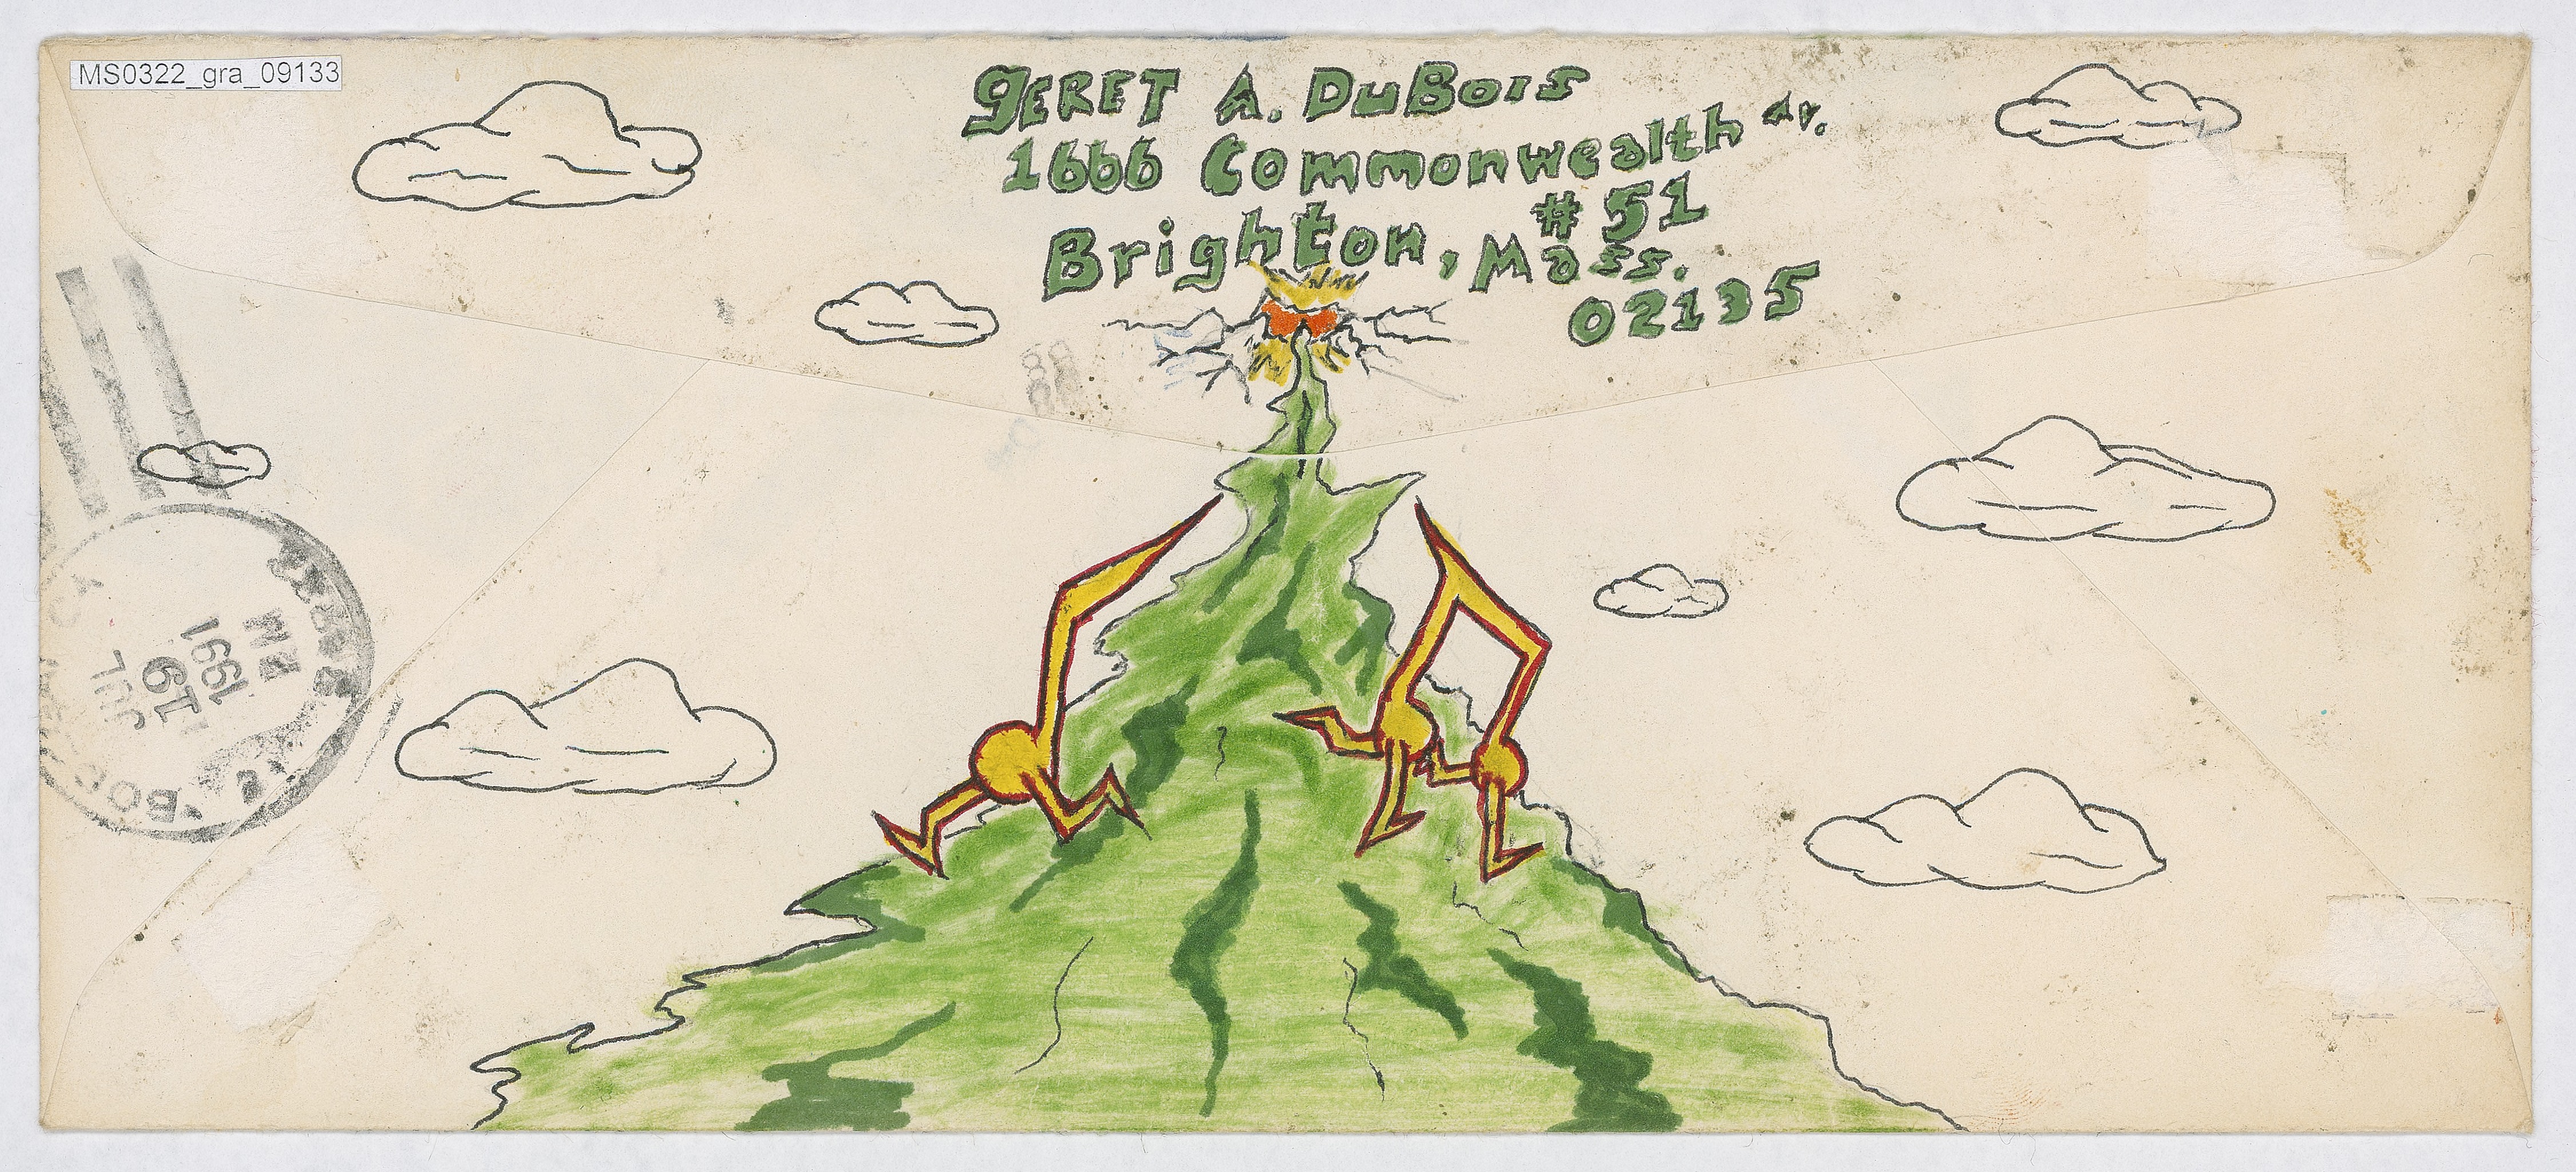 MS0322_gra_09133
GERET A. DuBois
1666 Commonwealth Av.
#51
Brighton, Mass.
02135
PM
1991
19
JUL